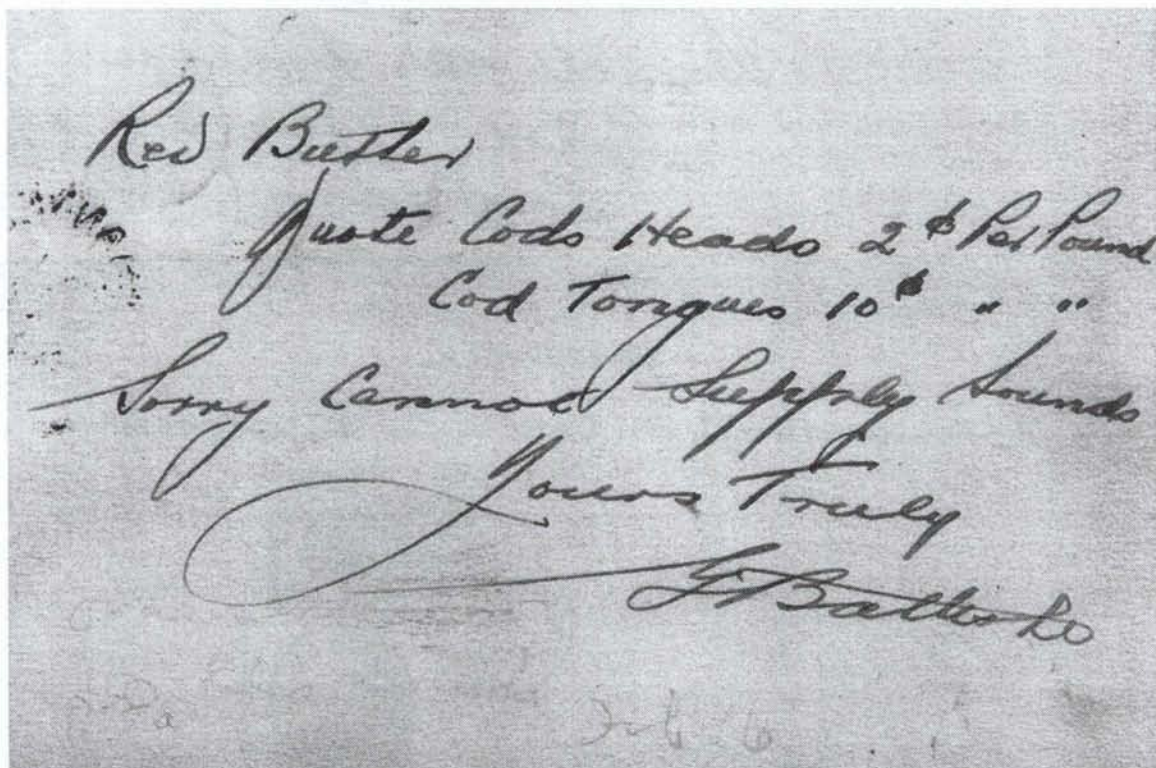 Rev Butler
Quote Cods Heads 2¢ Per Pound
Cod Tongues 10¢ " "
Sorry Cannot Supply Sounds
Yours Truly